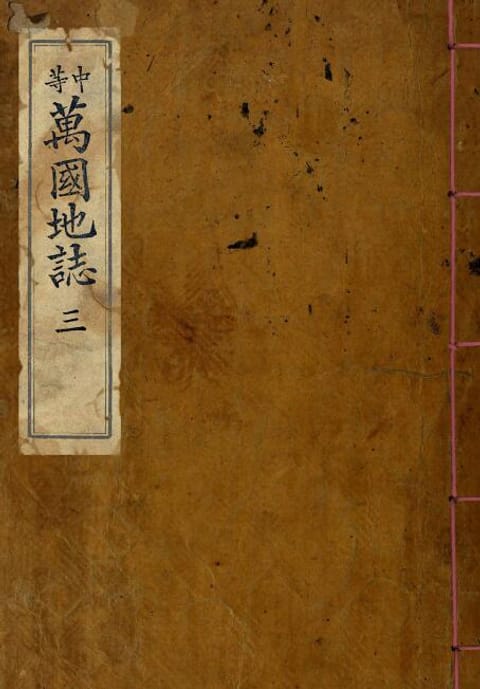 中等
萬國地誌 三